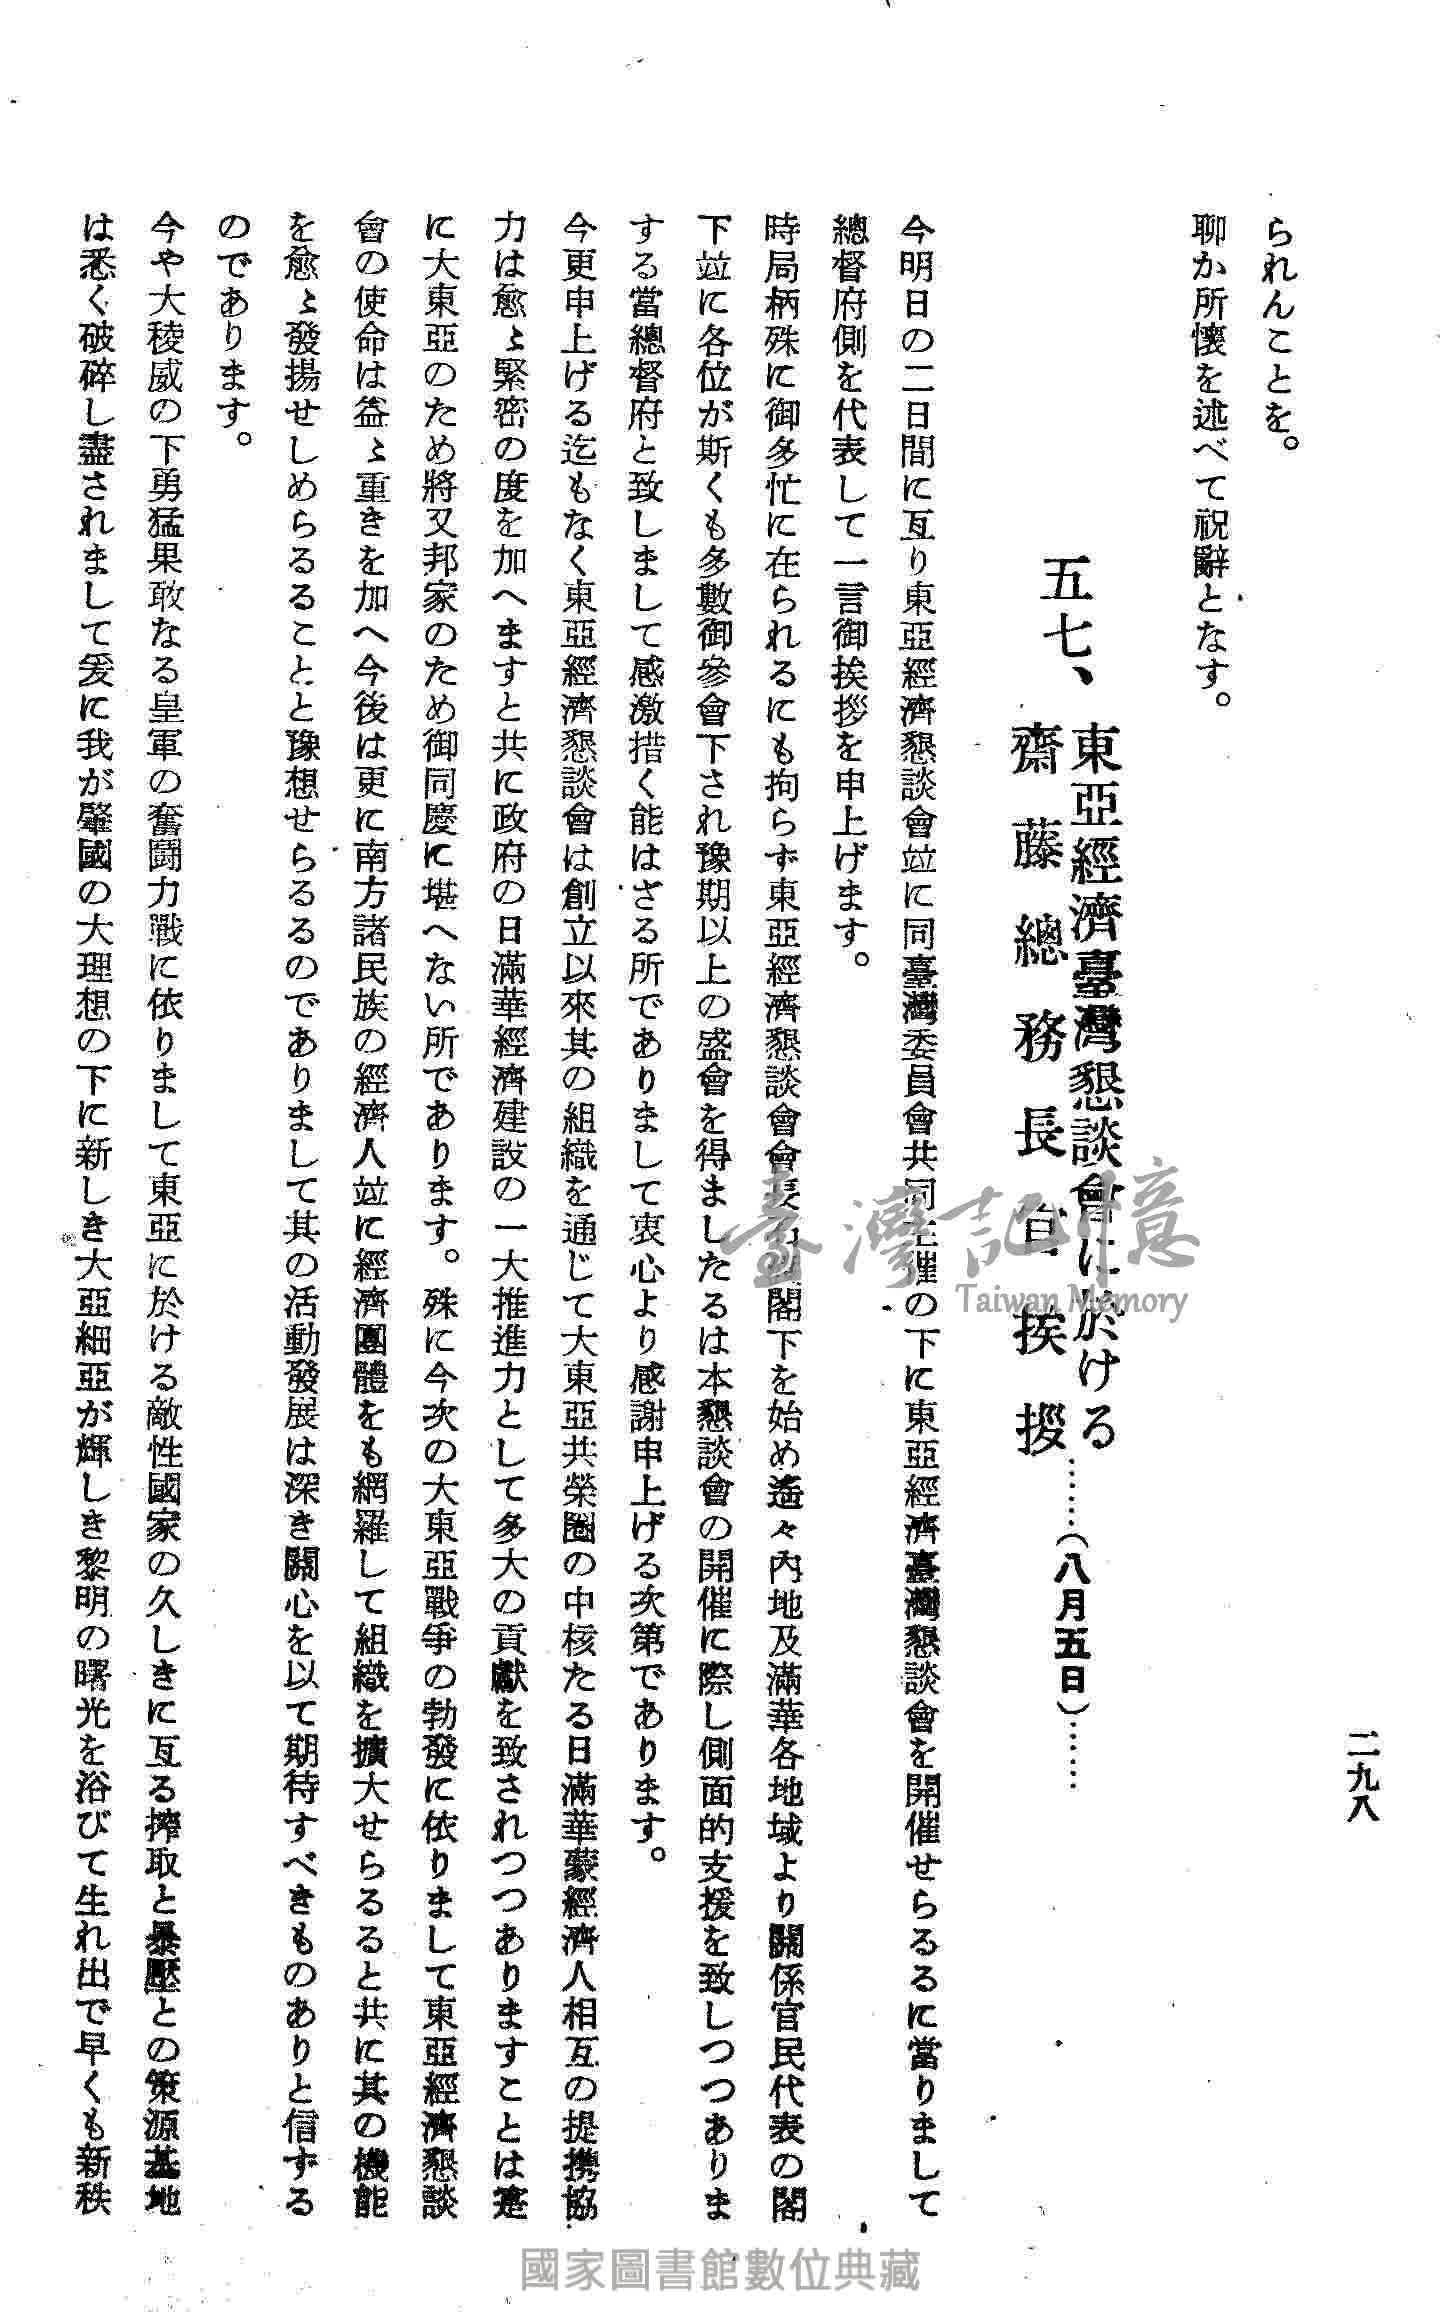 二九八
られんことを。
聊か所懷を述べて祝辭となす。
五七、
東亞經濟臺灣懇談會に於ける
齋藤總務長官挨拶
……(八月五日)……
今明日の二日間に亙り東亞經濟懇談會竝に同臺灣委員會共同主催の下に東亞經濟臺灣懇談會を開催せらるるに當りまして
總督府側を代表して一言御挨拶を申上げます。
時局柄殊に御多忙に在られるにも拘らず東亞經濟懇談會會長 閣下を始め遙々內地及滿華各地域より關係官民代表の閣
下竝に各位が斯くも多數御參會下され豫期以上の盛會を得ましたるは本懇談會の開催に際し側面的支援を致しつつありま
する當總督府と致しまして感激措く能はざる所でありまして衷心より感謝申上げる次第であります。
今更申上げる迄もなく東亞經濟懇談會は創立以來其の組織を通じて大東亞共榮圈の中核たる日滿華蒙經濟人相互の提携協
力は愈〻緊密の度を加へますと共に政府の日滿華經濟建設の一大推進力として多大の貢獻を致されつつありますことは寔
に大東亞のため將又邦家のため御同慶に堪へない所であります。殊に今次の大東亞戰爭の勃發に依りまして東亞經濟懇談
會の使命は益〻重きを加へ今後は更に南方諸民族の經濟人竝に經濟團體をも網羅して組織を擴大せらるると共に其の機能
を愈〻發揚せしめらるることと豫想せらるるのでありまして其の活動發展は深き關心を以て期待すべきものありと信ずる
のであります。
今や大稜威の下勇猛果敢なる皇軍の奮鬪力戰に依りまして東亞に於ける敵性國家の久しきに亙る搾取と暴壓との策源基地
は悉く破碎し盡されまして爰に我が肇國の大理想の下に新しき大亞細亞が輝しき黎明の曙光を浴びて生れ出で早くも新秩
臺灣記憶
Taiwan Memory
國家圖書館數位典藏